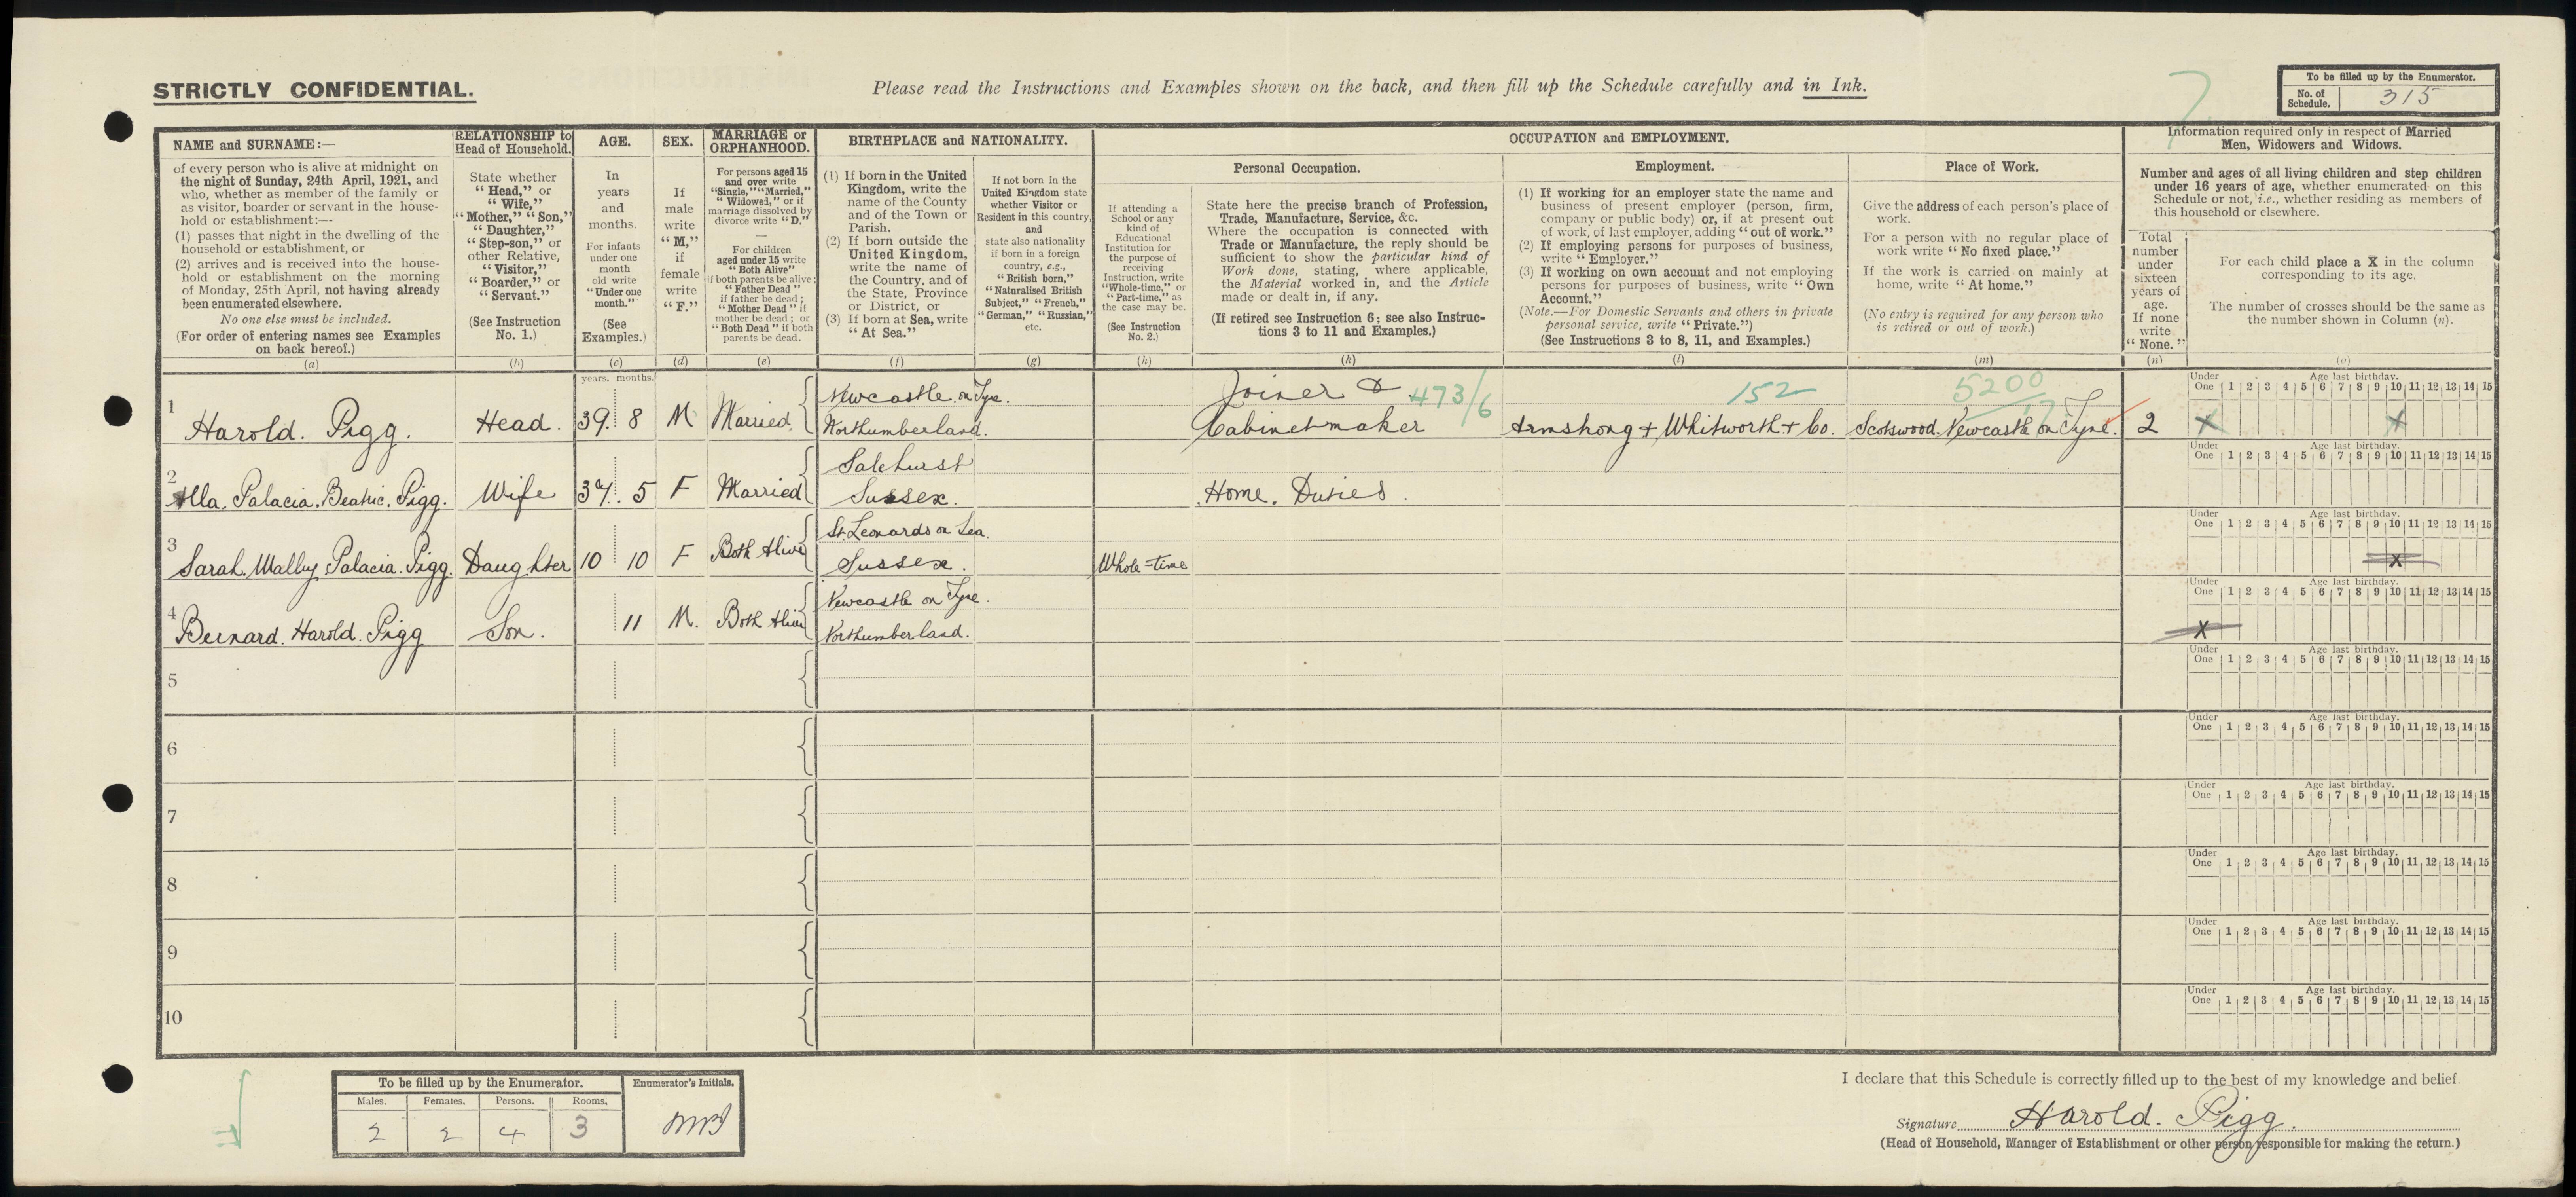 STRICTLY CONFIDENTIAL.
Please read the Instructions and Examples shown on the back, and then fill up the Schedule carefully and in Ink.
To be filled up by the Enumerator.
No. of Schedule. 315
NAME and SURNAME:—
of every person who is alive at midnight on
the night of Sunday, 24th April, 1921, and
who, whether as member of the family or
as visitor, boarder or servant in the house-
hold or establishment:—
(1) passes that night in the dwelling of the
household or establishment, or
(2) arrives and is received into the house-
hold or establishment on the morning
of Monday, 25th April, not having already
been enumerated elsewhere.
No one else must be included.
(For order of entering names see Examples
on back hereof.)
(a)
RELATIONSHIP to
Head of Household.
State whether
"Head," or
"Wife,"
"Mother," "Son,"
"Daughter,"
"Step-son," or
other Relative,
"Visitor,"
"Boarder," or
"Servant."
(See Instruction
No. 1.)
(b)
AGE.
In
years
and
months.
For infants
under one
month
old write
"Under one
month."
(See
Examples.)
(c)
SEX.
If
male
write
"M,"
if
female
write
"F."
(d)
MARRIAGE or
ORPHANHOOD.
For persons aged 15
and over write
"Single," "Married,"
"Widowed," or if
marriage dissolved by
divorce write "D."
—
For children
aged under 15 write
"Both Alive"
if both parents be alive;
"Father Dead"
if father be dead;
"Mother Dead" if
mother be dead; or
"Both Dead" if both
parents be dead.
(e)
BIRTHPLACE and NATIONALITY.
(1) If born in the United
Kingdom, write the
name of the County
and of the Town or
Parish.
(2) If born outside the
United Kingdom,
write the name of
the Country, and of
the State, Province
or District, or
(3) If born at Sea, write
"At Sea."
(f)
If not born in the
United Kingdom state
whether Visitor or
Resident in this country,
and
state also nationality
if born in a foreign
country, e.g.,
"British born,"
"Naturalised British
Subject," "French,"
"German," "Russian,"
etc.
(g)
OCCUPATION and EMPLOYMENT.
If attending a
School or any
kind of
Educational
Institution for
the purpose of
receiving
Instruction, write
"Whole-time," or
"Part-time," as
the case may be.
(See Instruction
No. 2.)
(h)
Personal Occupation.
State here the precise branch of Profession,
Trade, Manufacture, Service, &c.
Where the occupation is connected with
Trade or Manufacture, the reply should be
sufficient to show the particular kind of
Work done, stating, where applicable,
the Material worked in, and the Article
made or dealt in, if any.
(If retired see Instruction 6; see also Instruc-
tions 3 to 11 and Examples.)
(k)
Employment.
(1) If working for an employer state the name and
business of present employer (person, firm,
company or public body) or, if at present out
of work, of last employer, adding "out of work."
(2) If employing persons for purposes of business,
write "Employer."
(3) If working on own account and not employing
persons for purposes of business, write "Own
Account."
(Note.—For Domestic Servants and others in private
personal service, write "Private.")
(See Instructions 3 to 8, 11, and Examples.)
(l)
Place of Work.
Give the address of each person's place of
work.
For a person with no regular place of
work write "No fixed place."
If the work is carried on mainly at
home, write "At home."
(No entry is required for any person who
is retired or out of work.)
(m)
Information required only in respect of Married
Men, Widowers and Widows.
Number and ages of all living children and step children
under 16 years of age, whether enumerated on this
Schedule or not, i.e., whether residing as members of
this household or elsewhere.
Total
number
under
sixteen
years of
age.
If none
write
"None."
(n)
For each child place a X in the column
corresponding to its age.
The number of crosses should be the same as
the number shown in Column (n).
(o)
years. months.
Under One Age last birthday. 1 2 3 4 5 6 7 8 9 10 11 12 13 14 15
Newcastle on Tyne. Joiner & 473/6 152 5200
1 Harold. Pigg. Head. 39. 8 M Married Northumberland. Cabinetmaker Armstrong + Whitworth + Co. Scotswood. Newcastle on Tyne. 2 X X
Under One Age last birthday. 1 2 3 4 5 6 7 8 9 10 11 12 13 14 15
Salehurst
2 Palacia. Beatric. Pigg. Wife 5 F Married Sussex. Home. Duties.
Under One Age last birthday. 1 2 3 4 5 6 7 8 9 10 11 12 13 14 15
St Leonards on Sea.
3 Sarah. Walby. Palacia. Pigg. Daughter 10 10 F Both Alive Sussex. Whole-time X
Under One Age last birthday. 1 2 3 4 5 6 7 8 9 10 11 12 13 14 15
Newcastle on Tyne.
4 Bernard. Harold. Pigg Son. 11 M. Both Alive Northumberland. X
5 Under One Age last birthday. 1 2 3 4 5 6 7 8 9 10 11 12 13 14 15
6 Under One Age last birthday. 1 2 3 4 5 6 7 8 9 10 11 12 13 14 15
7 Under One Age last birthday. 1 2 3 4 5 6 7 8 9 10 11 12 13 14 15
8 Under One Age last birthday. 1 2 3 4 5 6 7 8 9 10 11 12 13 14 15
9 Under One Age last birthday. 1 2 3 4 5 6 7 8 9 10 11 12 13 14 15
10 Under One Age last birthday. 1 2 3 4 5 6 7 8 9 10 11 12 13 14 15
To be filled up by the Enumerator.
Males. Females. Persons. Rooms.
2 2 4 3
Enumerator's Initials.
I declare that this Schedule is correctly filled up to the best of my knowledge and belief.
Signature Harold. Pigg.
(Head of Household, Manager of Establishment or other person responsible for making the return.)